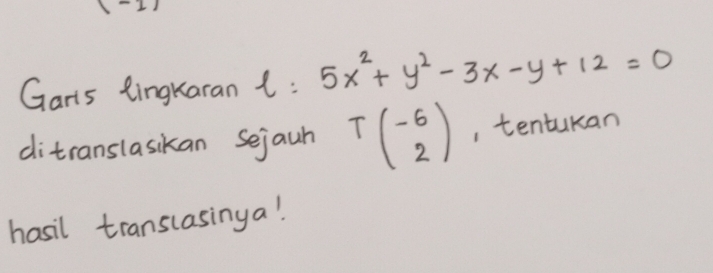 (-1)
Garis lingkaran l : 5x² + y² - 3x - y + 12 = 0
ditranslasikan sejauh T (-6 2), tentukan
hasil translasinya!